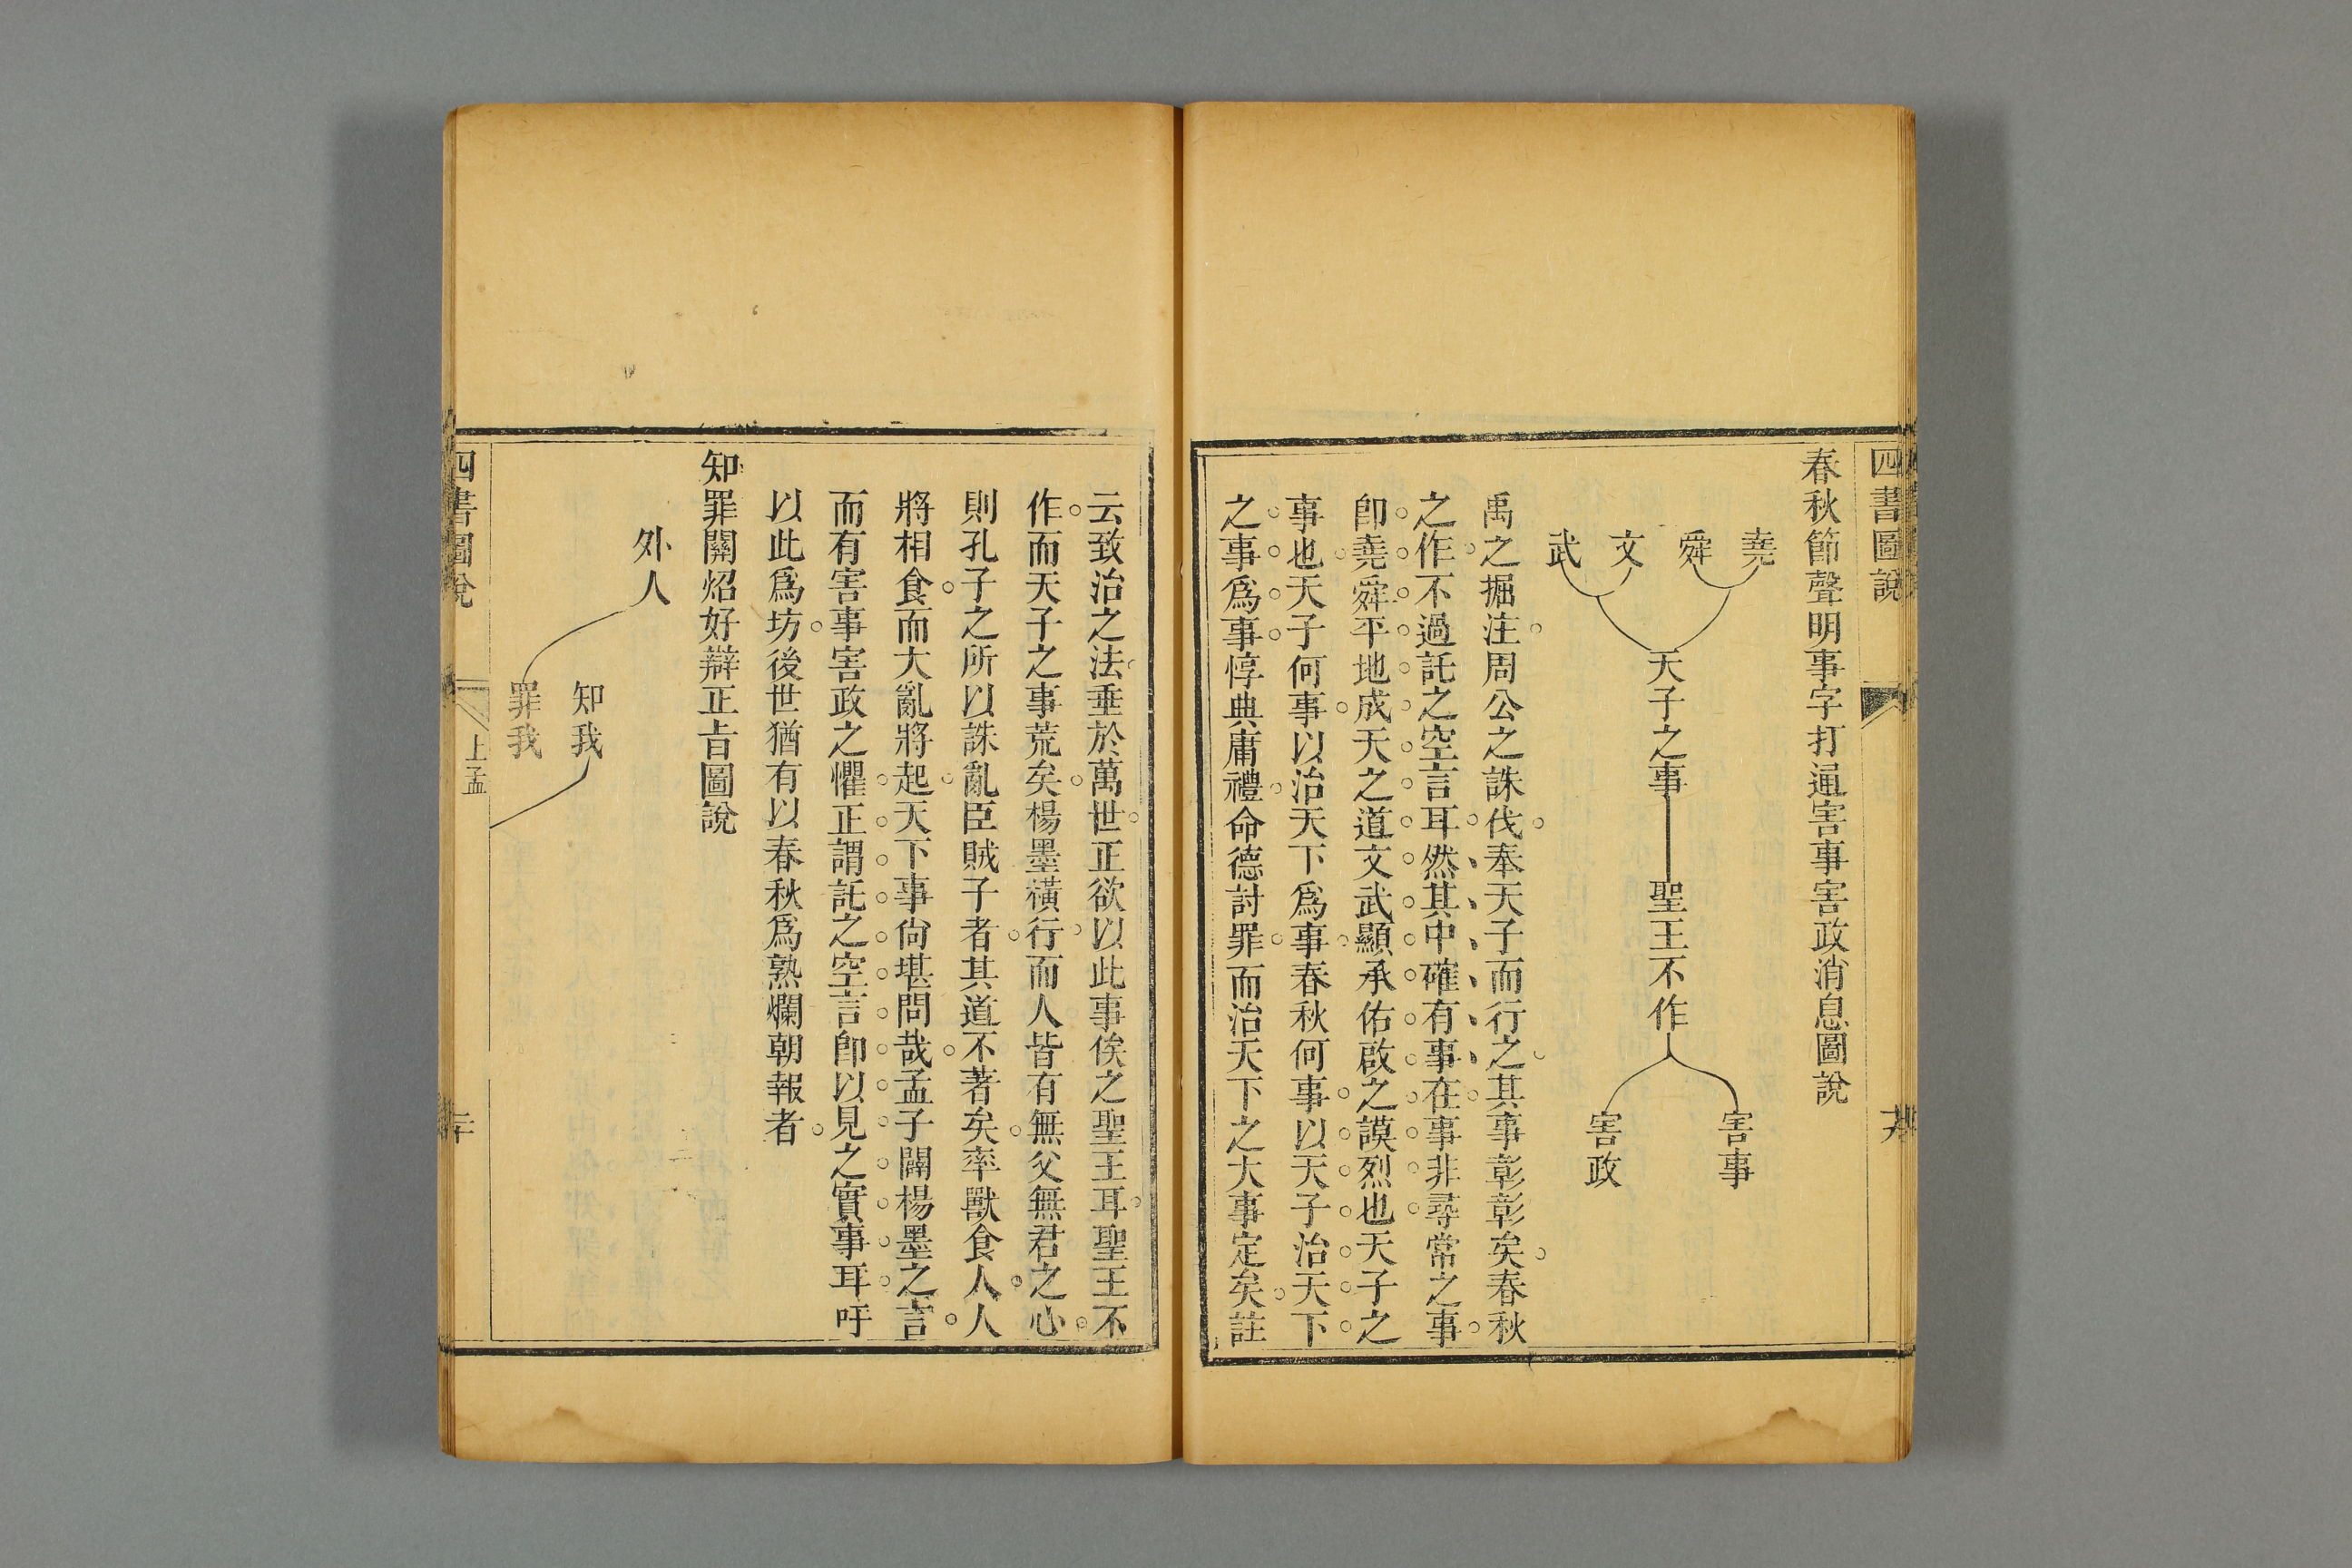 四書圖說
春秋節聲明事字打通害事害政消息圖說
堯
舜
文
武
天子之事
聖王不作
害事
害政
禹之掘注周公之誅伐奉天子而行之其事彰彰矣春秋
之作不過託之空言耳然其中確有事在事非尋常之事
卽堯舜平地成天之道文武顯承佑啟之謨烈也天子之
事也天子何事以治天下爲事春秋何事以天子治天下
之事爲事惇典庸禮命德討罪而治天下之大事定矣註
云致治之法垂於萬世正欲以此事俟之聖王耳聖王不
作而天子之事荒矣楊墨橫行而人皆有無父無君之心
則孔子之所以誅亂臣賊子者其道不著矣率獸食人人
將相食而大亂將起天下事尙堪問哉孟子闢楊墨之言
而有害事害政之懼正謂託之空言卽以見之實事耳吁
以此爲坊後世猶有以春秋爲熟爛朝報者
知罪關炤好辯正旨圖說
外人
知我
罪我
四書圖說
上孟
二十